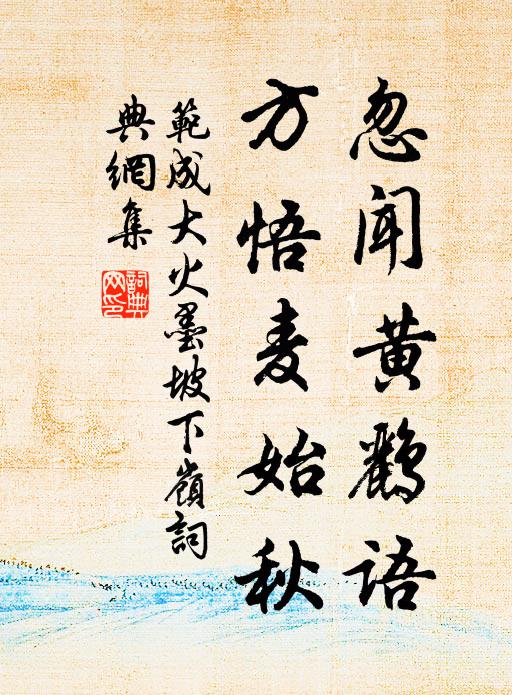 忽闻黄鹂语
方悟麦始秋
範成大火墨坡下嶺詞
典網集
詞典网印